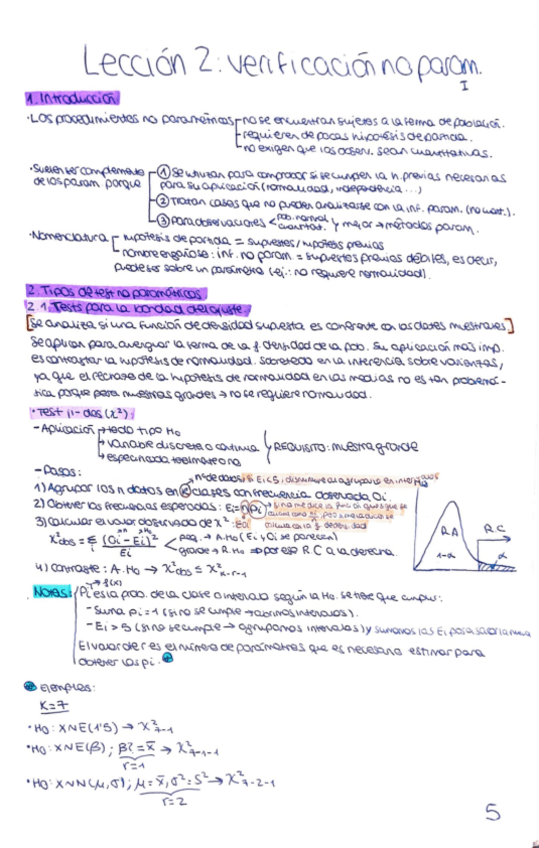 Lección 2: verificación no param.
I
1. Introducción
·Los procedimientos no paramétricos no se encuentran sujetos a la forma de población.
requieren de pocas hipótesis de partida.
no exigen que las observ. sean cuantitativas.
·Suelen ser complemento de los param porque
① Se utilizan para comprobar si se cumplen la h. previas necesarias
para su aplicación (normalidad, independencia ...)
② Tratan casos que no pueden analizarse con la inf. param. (no cuant.).
③ para observaciones < pob. normal cuantitat. y mejor → métodos param.
·Nomenclatura hipótesis de partida = supuestos/hipótesis previas
nombre engañoso: inf. no param = supuestos previos débiles, es decir,
puede ser sobre un parámetro (ej.: no requiere normalidad).
2. Tipos de test no paramétricos
2.1. Tests para la bondad del ajuste.
[Se analiza si una función de densidad supuesta es coherente con los datos muestrales]
Se aplican para averiguar la forma de la f. densidad de la pob. Su aplicación más imp.
es contrastar la hipótesis de normalidad. Sobretodo en la inferencia sobre varianzas,
ya que el rechazo de la hipótesis de normalidad en las medias no es tan problemá-
tica porque para muestras grandes → no se requiere normalidad.
·Test ji-dos (χ²):
-Aplicación → todo tipo H₀
→ variable discreta o continua
→ especificada totalmente o no
REQUISITO: muestra grande
-Pasos:
1) Agrupar los n datos en K clases con frecuencia observada Oi.
2) Obtener las frecuencias esperadas: Ei = n Pi
3) Calcular el valor observado de χ²:
χ²obs = Σ (Oi - Ei)² / Ei < peq. → A.H₀ (Ei y Oi se parecen)
grande → R.H₀ ⇒ por eso R.C a la derecha.
4) contraste: A.H₀ → χ²obs ≤ χ²k-r-1
R.A R.C
1-α α
→ f(x)
Notas: Pi es la prob. de la clase o intervalo según la H₀. se tiene que cumplir:
-Suma Pi = 1 (si no se cumple → abrimos intervalos).
-Ei > 5 (si no se cumple → agrupamos intervalos) y sumamos las Ei
El valor de r es el número de parámetros que es necesario estimar para
obtener las pi. ⊕
⊕ Ejemplos:
K=7
·H₀: X~E(1'5) → χ²7-1
·H₀: X~E(β); β̂ = x̄ → χ²7-1-1
r=1
·H₀: X~N(μ,σ); μ = x̄, σ² = S² → χ²7-2-1
r=2
5